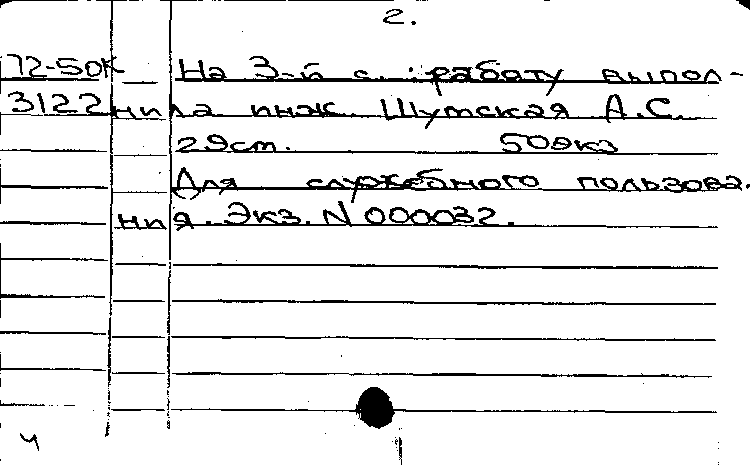 2.
72-50К На 3-й с.: работу выпол-
3122 нила инж. Шутская А.С.
29ст. 50экз
Для служебного пользова.
ния. Экз. N 000032.
4